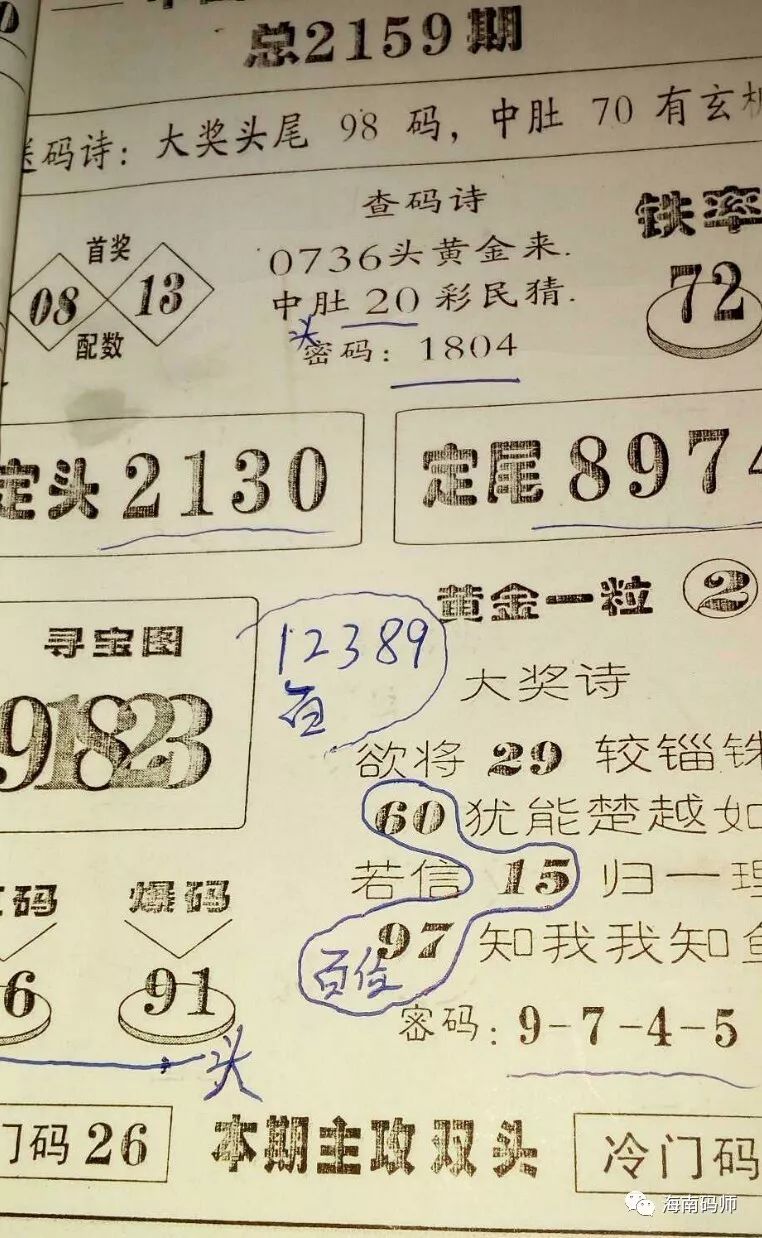 总2159期
送码诗：大奖头尾 98 码，中肚 70 有玄机
查码诗
铁率
首奖
0736头黄金来.
72
08 13
中肚 20 彩民猜.
配数
头
密码：1804
定头 2130
定尾 8974
黄金一粒 2
寻宝图
12389
百
大奖诗
91823
欲将 29 较锱铢
60 犹能楚越如
若信 15 归一理
码 爆码
97 知我我知鱼
百位
6 91
密码：9-7-4-5
头
门码 26
本期主攻双头
冷门码
海南码师